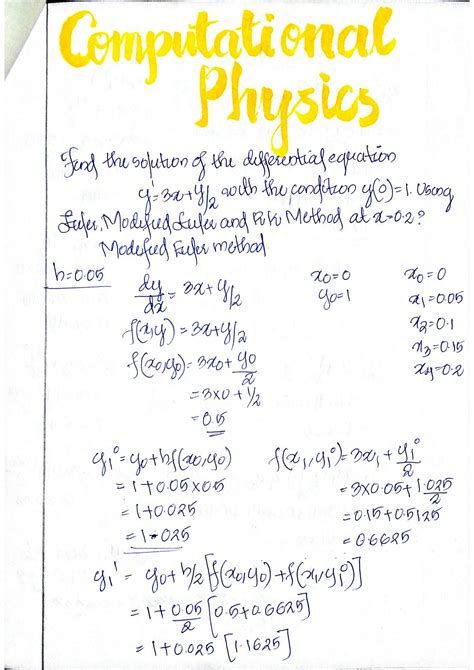 Computational
Physics
Find the solution of the differential equation
y' = 3x + y/2 with the condition y(0) = 1. Using
Euler, Modified Euler and R.K Method at x = 0.2?
Modified Euler method
h = 0.05
dy/dx = 3x + y/2
x₀ = 0
y₀ = 1
f(x,y) = 3x + y/2
f(x₀,y₀) = 3x₀ + y₀/2
= 3×0 + 1/2
= 0.5
x₀ = 0
x₁ = 0.05
x₂ = 0.1
x₃ = 0.15
x₄ = 0.2
y₁⁰ = y₀ + hf(x₀,y₀)
= 1 + 0.05×0.5
= 1 + 0.025
= 1.025
f(x₁,y₁⁰) = 3x₁ + y₁⁰/2
= 3×0.05 + 1.025/2
= 0.15 + 0.5125
= 0.6625
y₁¹ = y₀ + h/2 [f(x₀,y₀) + f(x₁,y₁⁰)]
= 1 + 0.05/2 [0.5 + 0.6625]
= 1 + 0.025 [1.1625]